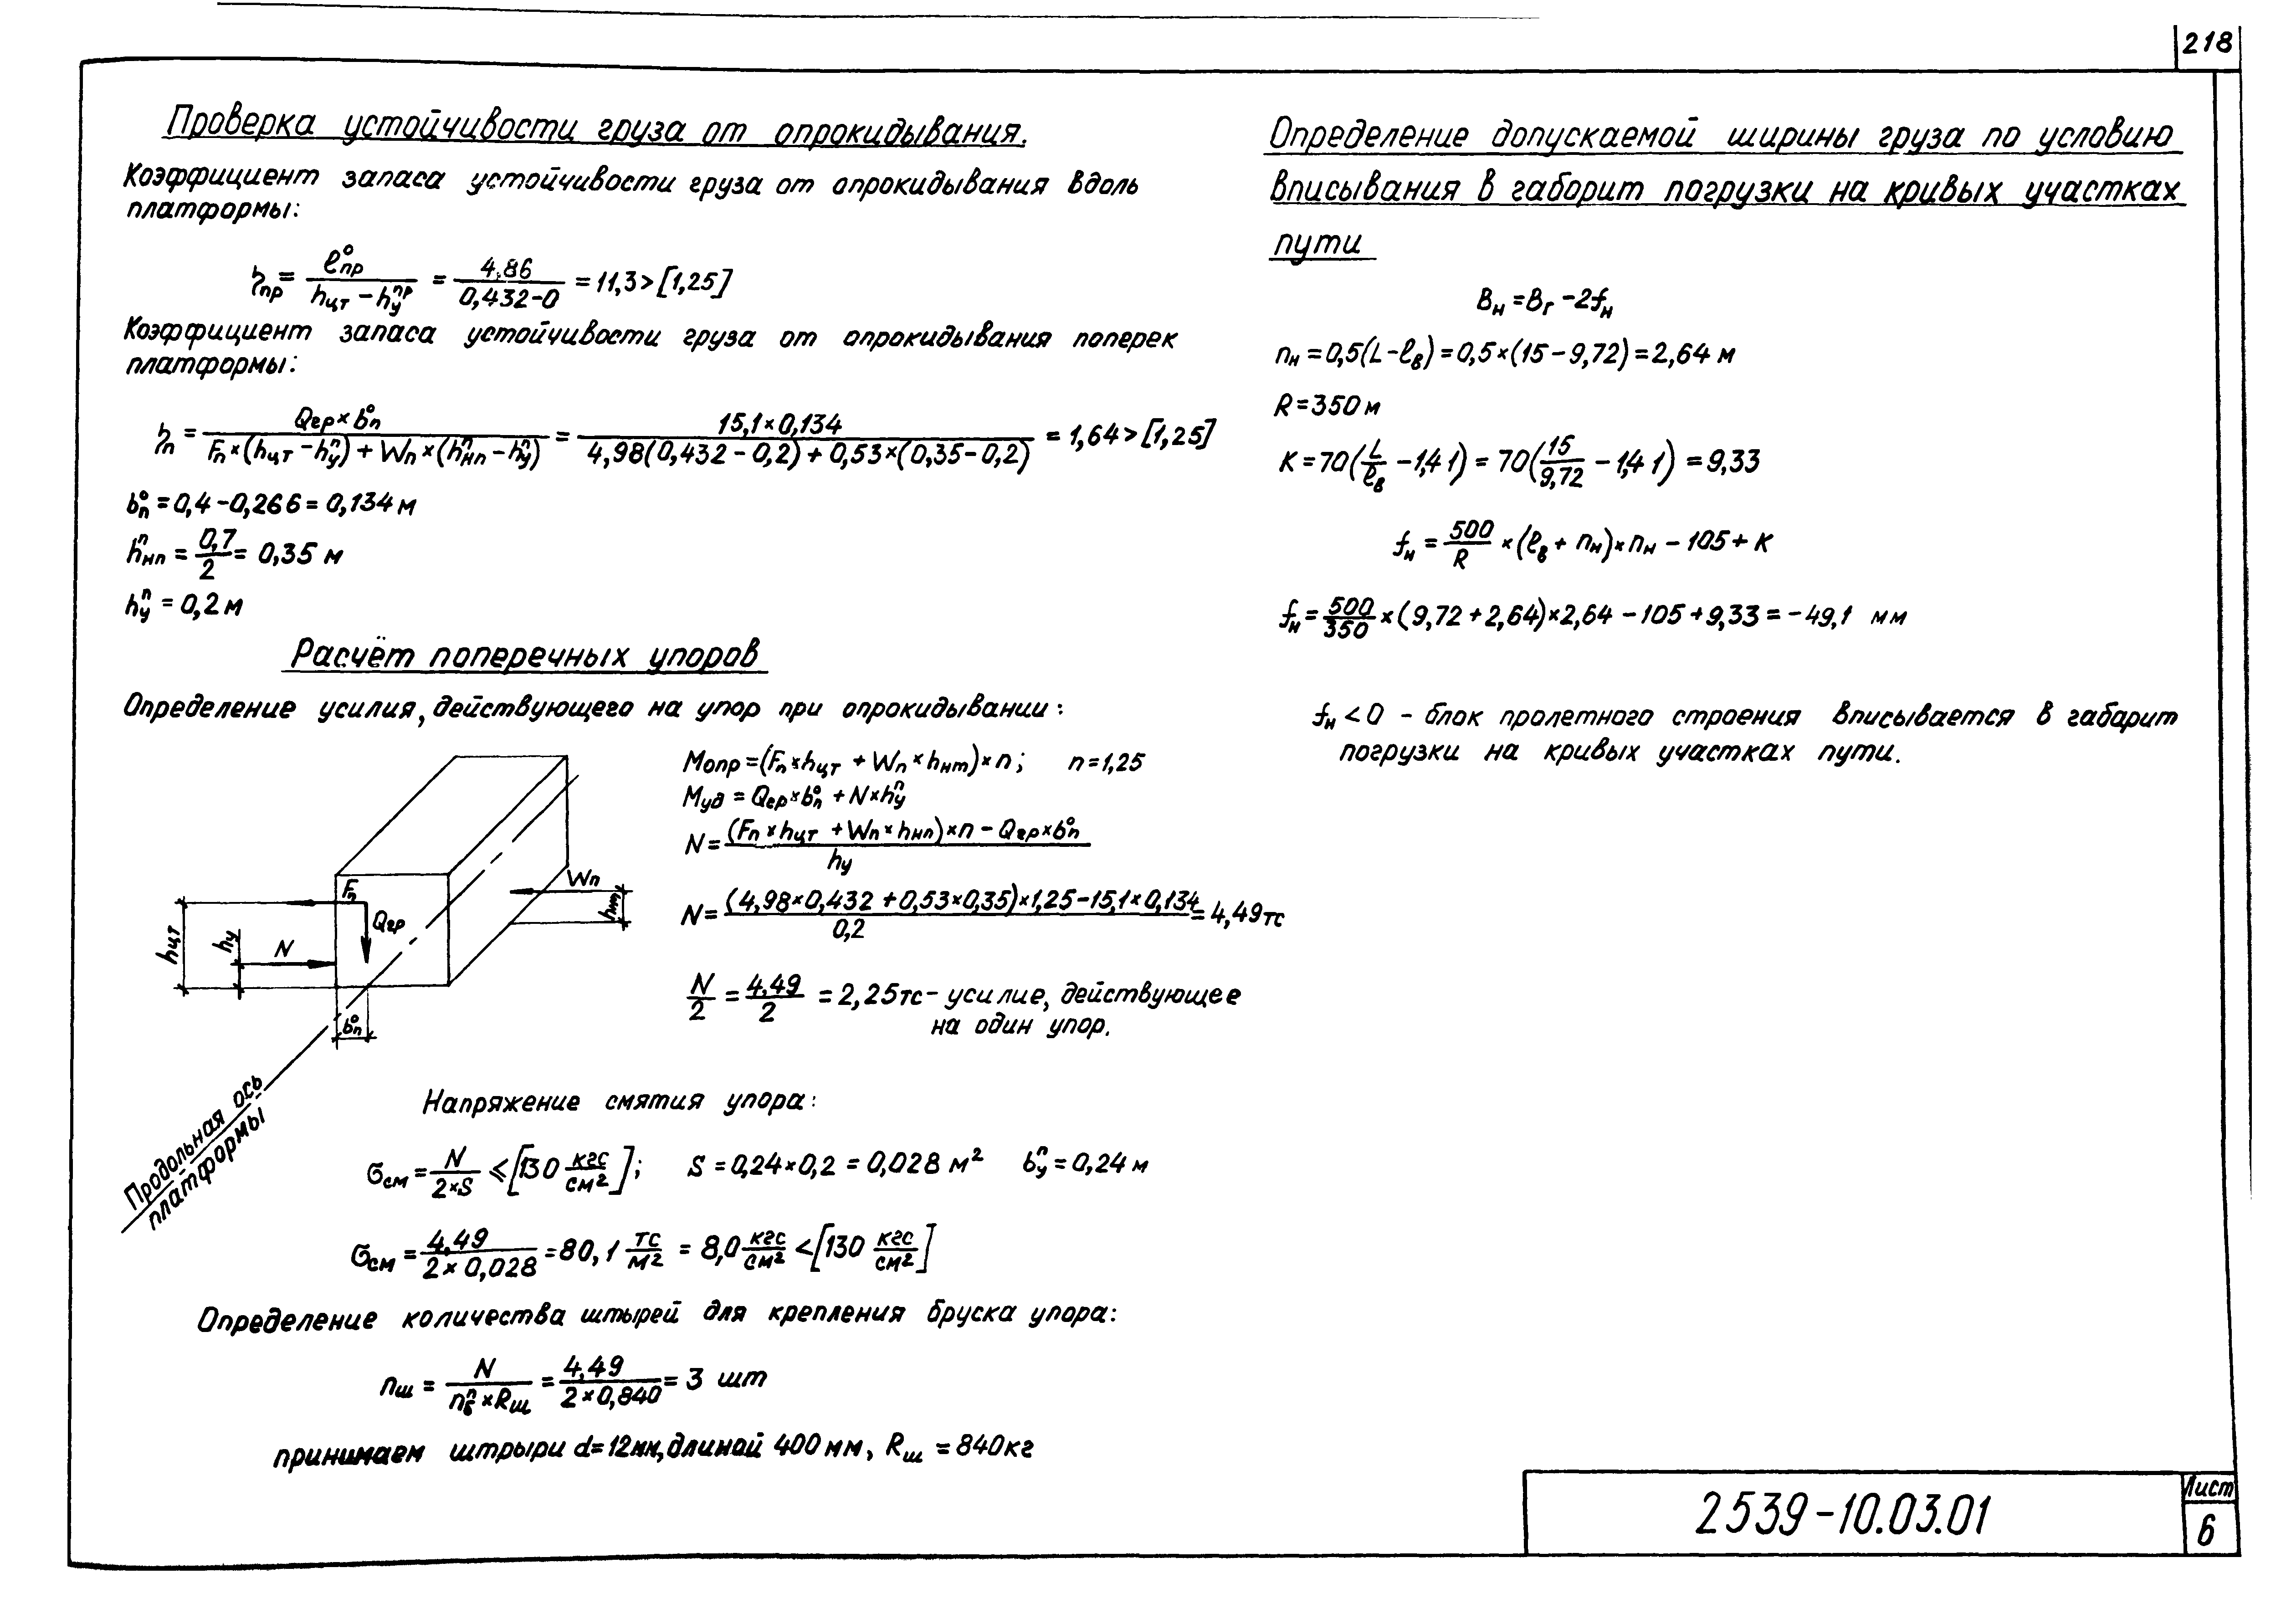 218
Проверка устойчивости груза от опрокидывания.
Коэффициент запаса устойчивости груза от опрокидывания вдоль
платформы:
ηпр = l⁰пр / (hцт − hᵖʳу) = 4,86 / (0,432−0) = 11,3 > [1,25]
Коэффициент запаса устойчивости груза от опрокидывания поперек
платформы:
ηп = Qгр × b⁰п / (Fп × (hцт − hⁿу) + Wп × (hⁿнп − hⁿу)) = 15,1 × 0,134 / (4,98(0,432 − 0,2) + 0,53 × (0,35 − 0,2)) = 1,64 > [1,25]
b⁰п = 0,4 − 0,266 = 0,134 м
hⁿнп = 0,7 / 2 = 0,35 м
hⁿу = 0,2 м
Расчёт поперечных упоров
Определение усилия, действующего на упор при опрокидывании:
Mопр = (Fп × hцт + Wп × hнт) × n; n = 1,25
Mуд = Qгр × b⁰п + N × hⁿу
N = ((Fп × hцт + Wп × hнп) × n − Qгр × b⁰п) / hу
N = ((4,98 × 0,432 + 0,53 × 0,35) × 1,25 − 15,1 × 0,134) / 0,2 = 4,49 тс
N / 2 = 4,49 / 2 = 2,25 тс − усилие, действующее
на один упор.
Fп
Qгр
Wп
N
hцт
hу
b⁰п
Продольная ось
платформы
Напряжение смятия упора:
σсм = N / (2×S) ≤ [130 кгс/см²]; S = 0,24 × 0,2 = 0,028 м² bⁿу = 0,24 м
σсм = 4,49 / (2 × 0,028) = 80,1 тс/м² = 8,0 кгс/см² < [130 кгс/см²]
Определение количества штырей для крепления бруска упора:
nш = N / (nⁿб × Rш) = 4,49 / (2 × 0,840) = 3 шт
принимаем штрыри d = 12мм, длиной 400 мм, Rш = 840кг
Определение допускаемой ширины груза по условию
вписывания в габорит погрузки на кривых участках
пути
Bн = Bг − 2fн
nн = 0,5(L − lв) = 0,5 × (15 − 9,72) = 2,64 м
R = 350 м
K = 70(L / lв − 1,41) = 70(15 / 9,72 − 1,41) = 9,33
fн = 500 / R × (lв + nн) × nн − 105 + K
fн = 500 / 350 × (9,72 + 2,64) × 2,64 − 105 + 9,33 = −49,1 мм
fн < 0 − блок пролетного строения вписывается в габарит
погрузки на кривых участках пути.
2539-10.03.01
Лист
6